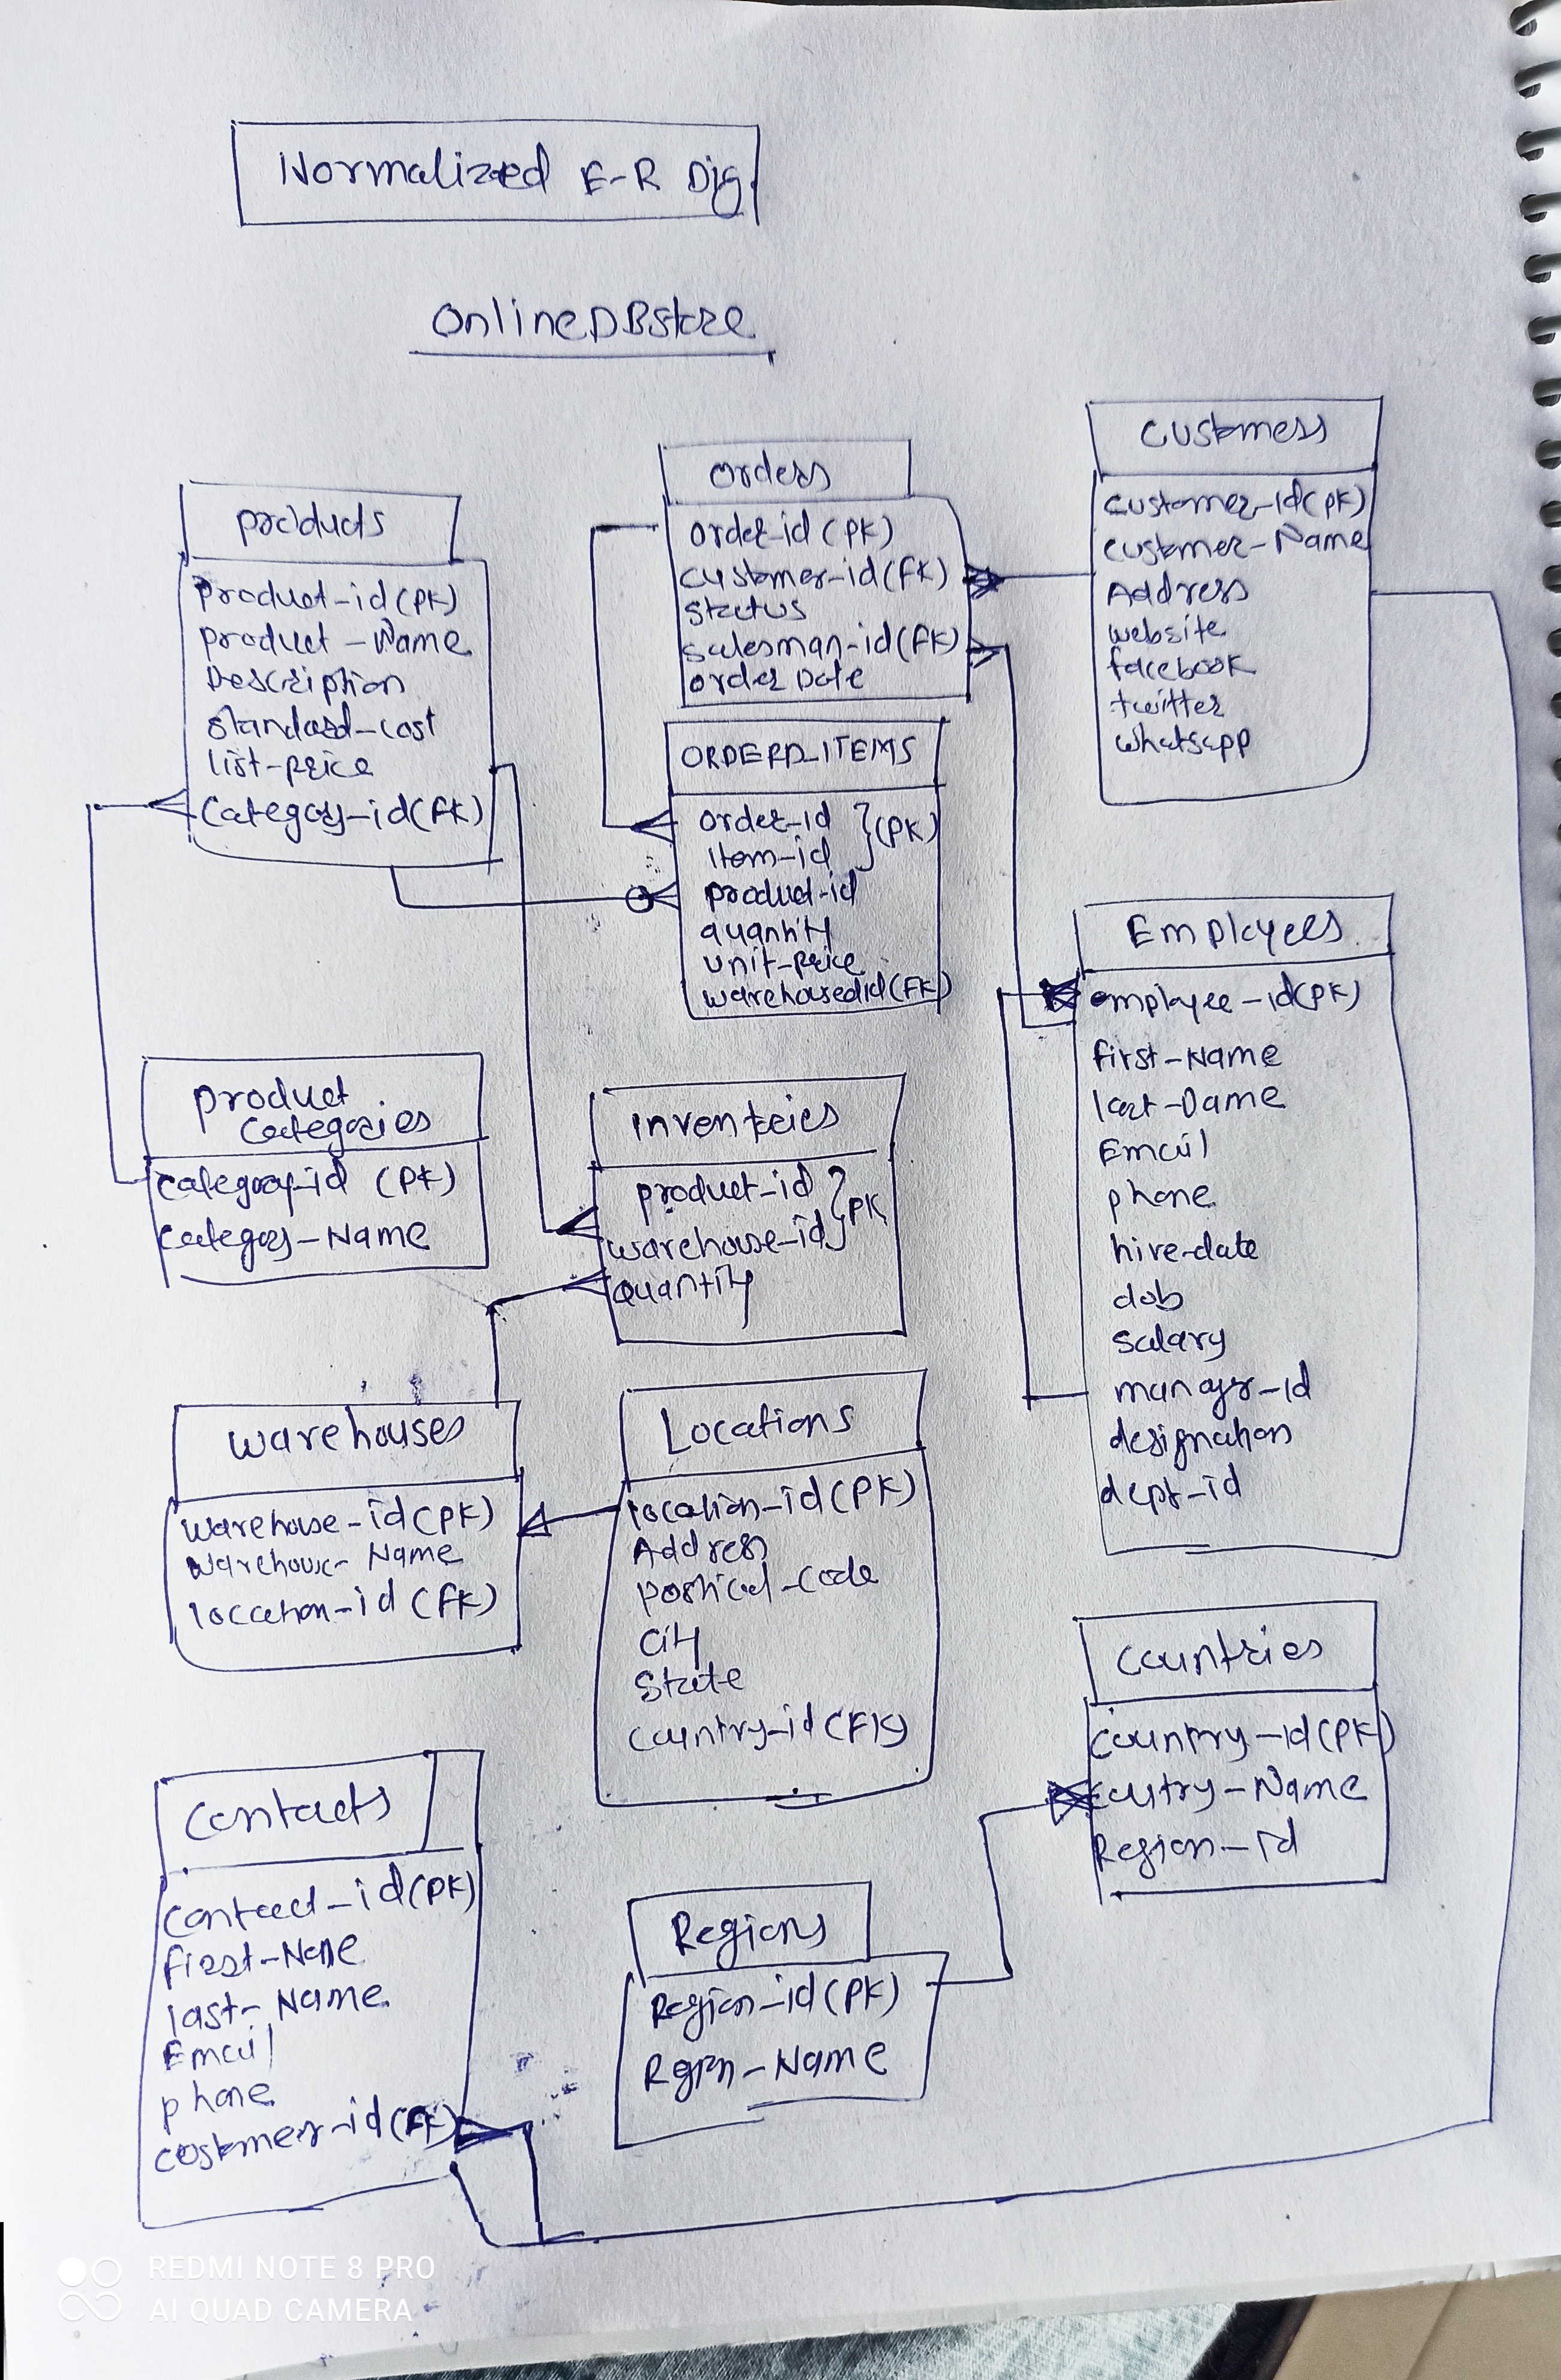 Normalized E-R Dig.
OnlineDBstore
products
product-id(PK)
product-Name
Description
standard-cost
list-price
Category-id(FK)
orders
order-id (PK)
customer-id(FK)
status
salesman-id(FK)
order Date
ORDERD_ITEMS
order-id } (PK)
item-id
product-id
quantity
unit-price
warehousedid(FK)
customers
customer-id(PK)
customer-Name
Address
website
facebook
twitter
whatsapp
Employees
employee-id(PK)
first-Name
last-Name
Email
phone
hire-date
dob
salary
manager-id
designation
dept-id
product
Categories
category-id (PK)
category-Name
inventories
product-id } PK
warehouse-id
quantity
warehouses
warehouse-id(PK)
warehouse-Name
location-id (FK)
Locations
location-id(PK)
Address
postical-code
city
State
country-id(FK)
countries
country-id(PK)
coutry-Name
Region-id
contacts
contact-id(PK)
first-Name
last-Name
Email
phone
costmer-id(FK)
Regions
Region-id(PK)
Rgion-Name
REDMI NOTE 8 PRO
AI QUAD CAMERA